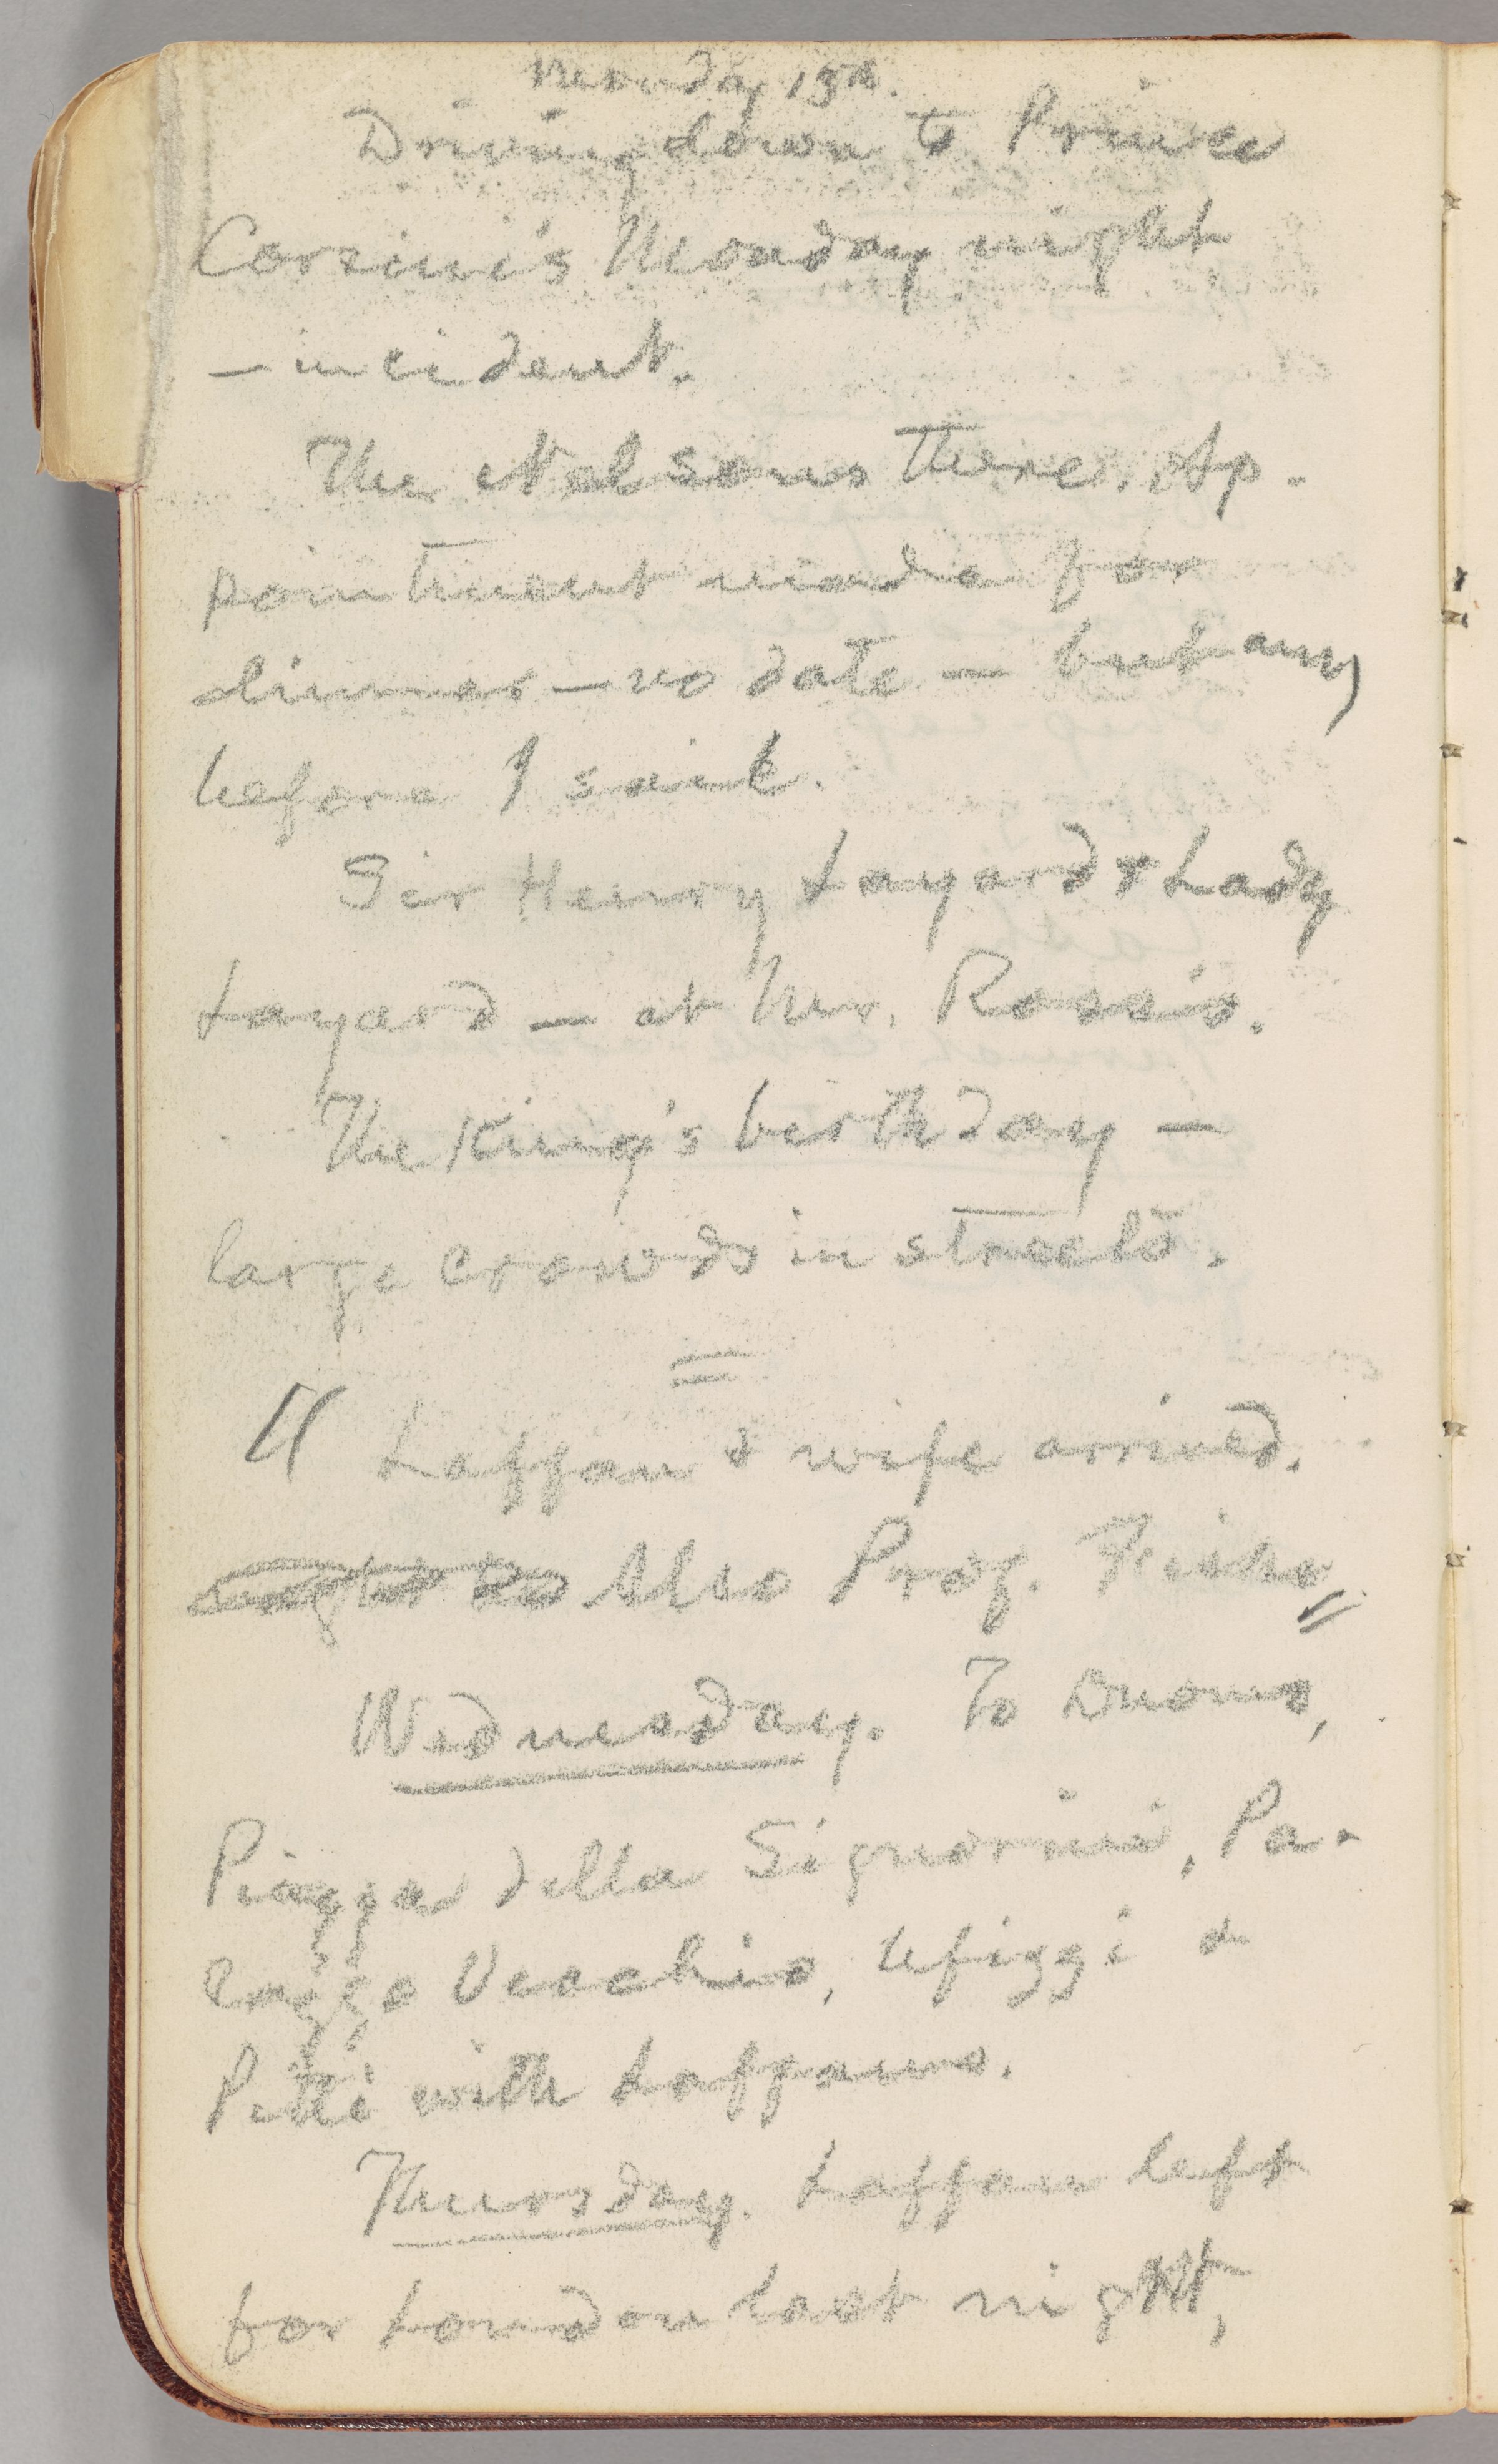 Monday 13th.
Driving down to Prince
Corsini's Monday night
— incident.
The Nelsons there. Ap-
pointment made for
dinner — no date — but any
before I sail.
Sir Henry Layard & Lady
Layard — at Mrs. Ross's.
The King's birthday —
large crowds in streets.
=
Laffan & wife arrived.
Also Prof. Fiske
Wednesday. To Duomo,
Piazza della Signorini, Pa-
lazzo Vecchio, Ufizzi &
Pitti with Laffans.
Thursday. Laffan left
for London last night,